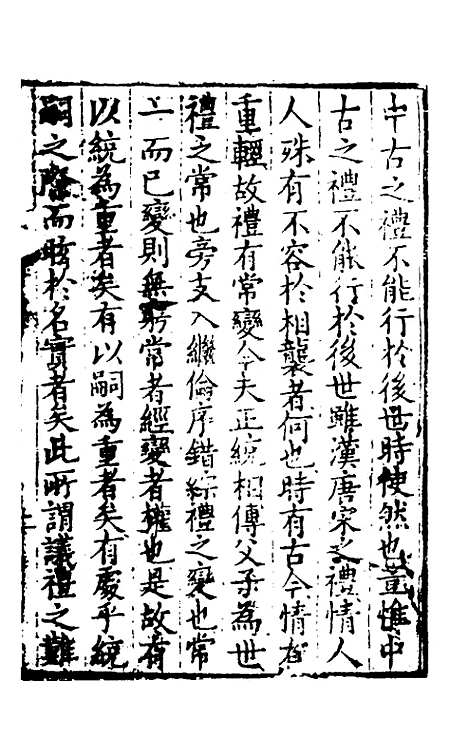 中古之禮不能行於後世時使然也豈惟中
古之禮不能行於後世雖漢唐宋之禮情人
人殊有不容於相襲者何也時有古今情有
重輕故禮有常變今夫正統相傳父子為世
禮之常也旁支入繼倫序錯綜禮之變也常
一而已變則無窮常者經變者權也是故有
以統為重者矣有以嗣為重者矣有處乎統
嗣之際而眩於名實者矣此所謂議禮之難